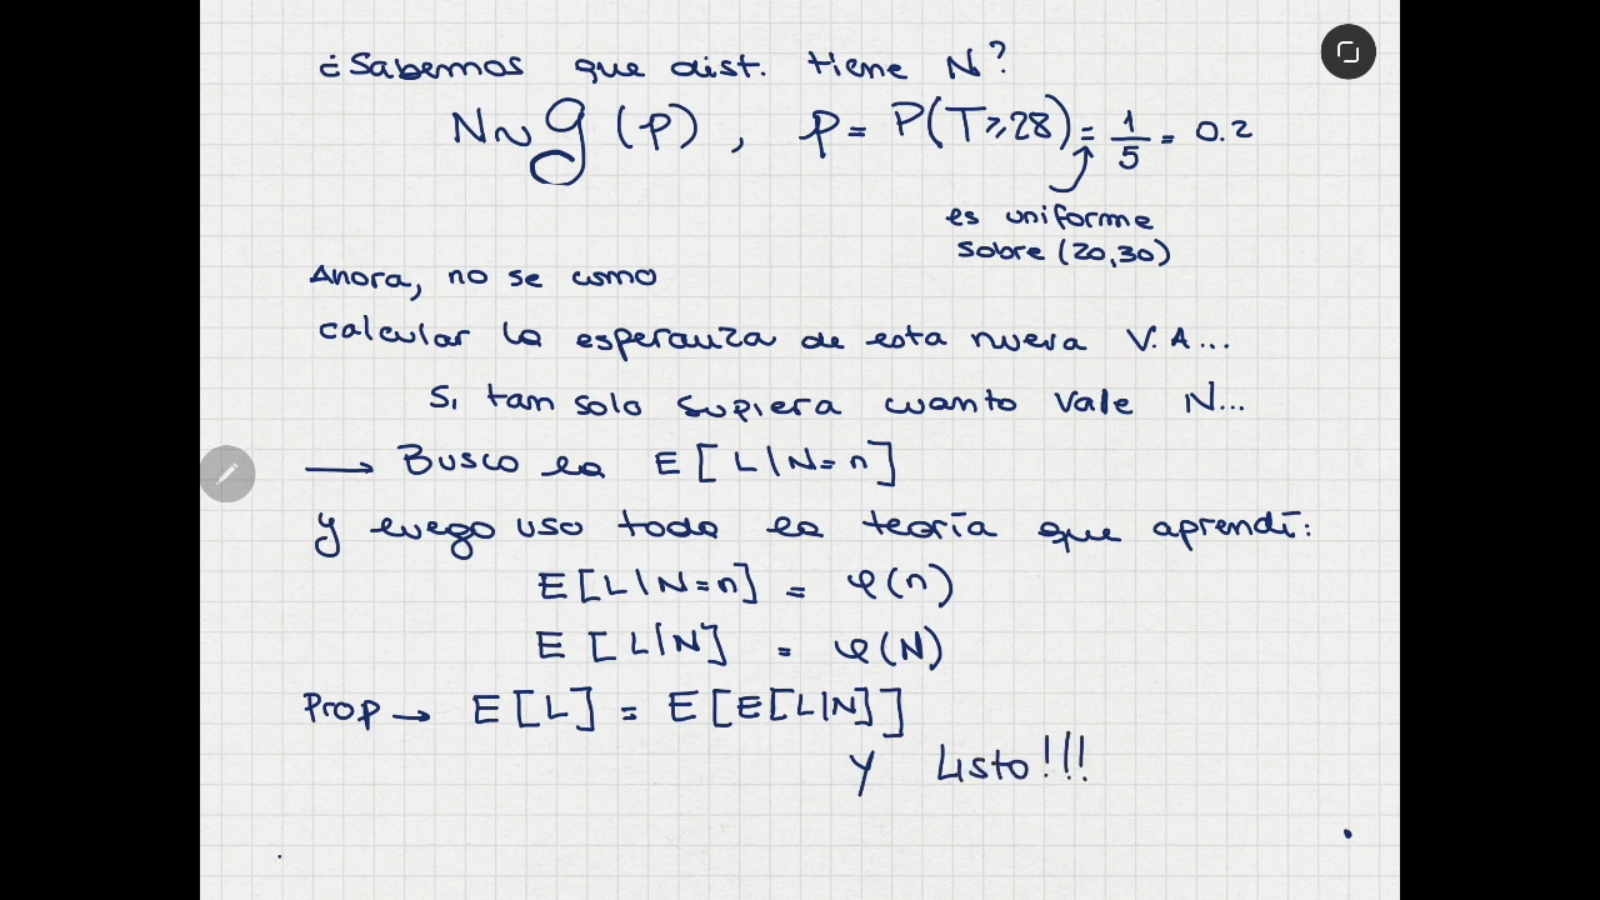 ¿Sabemos que dist. tiene N?
N~G(p), p = P(T≥28) = 1/5 = 0.2
es uniforme
sobre (20,30)
Ahora, no se como
calcular la esperanza de esta nueva V.A...
Si tan solo supiera cuanto vale N...
→ Busco la E[L|N=n]
y luego uso toda la teoría que aprendí:
E[L|N=n] = φ(n)
E[L|N] = φ(N)
Prop → E[L] = E[E[L|N]]
y Listo!!!